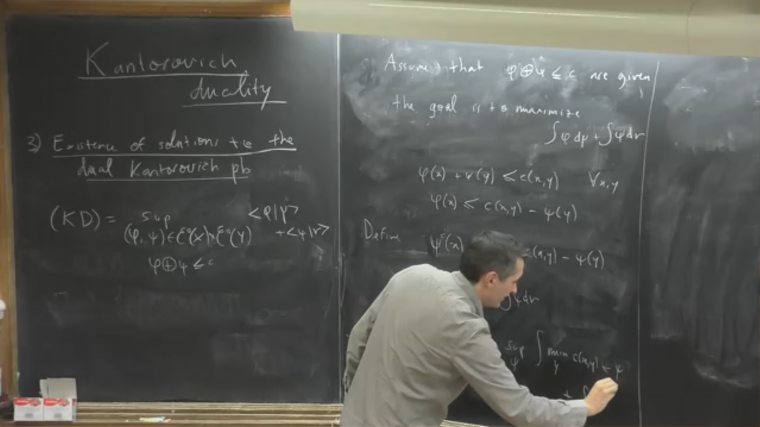 Kantorovich
duality
3) Existence of solutions to the
dual Kantorovich pb
(KD) = sup <φ|μ> + <ψ|ν>
(φ, ψ) ∈ C⁰(X)×C⁰(Y)
φ⊕ψ ≤ c
Assume that φ⊕ψ ≤ c are given
the goal is to maximize
∫φdμ + ∫ψdν
φ(x) + ψ(y) ≤ c(x,y) ∀x,y
φ(x) ≤ c(x,y) − ψ(y)
Define ψᶜ(x) c(x,y) − ψ(y)
∫ψdν
sup ∫ min c(x,y) − ψ
ψ y
+ ∫